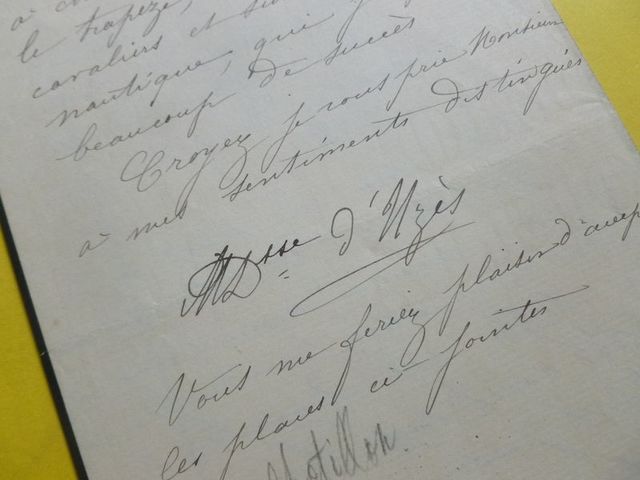 le trapèze,
cavaliers et
nautique, qui
beaucoup de succès
Croyez je vous prie Monsieur
à mes sentiments distingués
Dsse d'Uzès
Vous me feriez plaisir d'
les places ci jointes